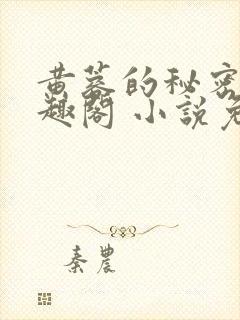 黄蓉的秘密
趣閣 小說免
秦農